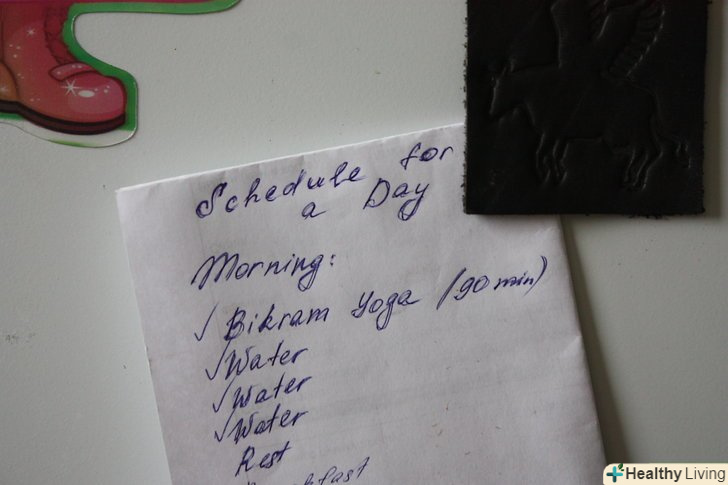 Schedule for
a Day
Morning:
✓ Bikram Yoga (90 min)
✓ Water
✓ Water
✓ Water
Rest
Healthy Living